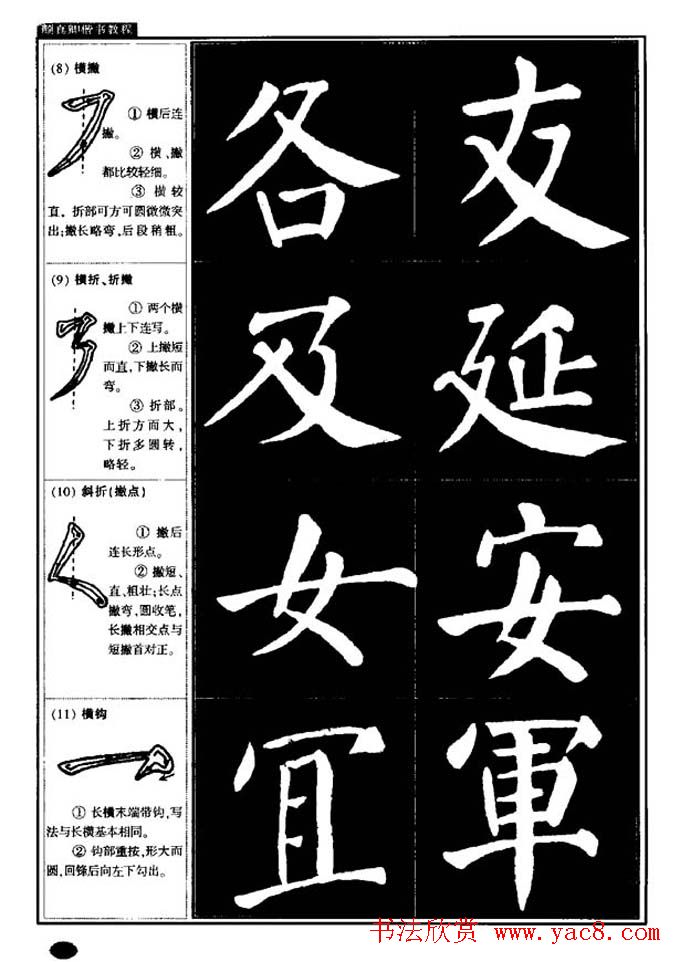 颜真卿楷书教程
(8) 横撇
① 横后连
撇。
② 横、撇
都比较轻细。
③ 横较
直，折部可方可圆微微突
出；撇长略弯，后段稍粗。
各 支
(9) 横折、折撇
① 两个横
撇上下连写。
② 上撇短
而直，下撇长而
弯。
③ 折部。
上折方而大，
下折多圆转，
略轻。
及 延
(10) 斜折(撇点)
① 撇后
连长形点。
② 撇短、
直、粗壮；长点
撇弯，圆收笔，
长撇相交点与
短撇首对正。
女 安
(11) 横钩
① 长横末端带钩，写
法与长横基本相同。
② 钩部重按，形大而
圆，回锋后向左下勾出。
冝 軍
书法欣赏 www.yac8.com